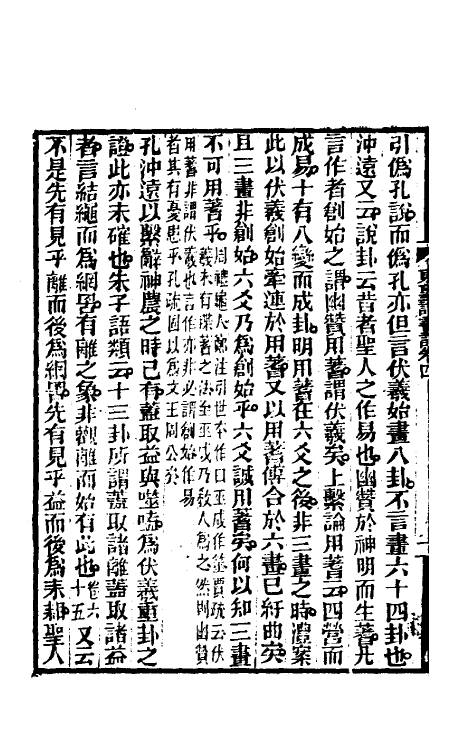 引僞孔說而僞孔亦但言伏羲始畫八卦不言畫六十四卦也
沖遠又云說卦云昔者聖人之作易也幽贊於神明而生蓍凡
言作者創始之謂幽贊用蓍謂伏羲矣上繫論用蓍云四營而
成易十有八變而成卦明用蓍在六爻之後非三畫之時澧案
此以伏羲創始牽連於用蓍又以用蓍傅合於六畫已紆曲矣
且三畫非創始六爻乃爲創始乎六爻誠用蓍矣何以知三畫
不可用蓍乎周禮龜人鄭注引世本作曰巫咸作筮賈疏云伏
羲未有揲蓍之法至巫咸乃敎人爲之然則幽贊
用蓍非謂伏羲也言作亦非必謂創始作易
者其有憂患乎孔疏固以爲文王周公矣
孔沖遠以繫辭神農之時已有蓋取益與噬嗑爲伏羲重卦之
證此亦未確也朱子語類云十三卦所謂蓋取諸離蓋取諸益
者言結繩而爲網罟有離之象非觀離而始有此也卷六
十五又云
不是先有見乎離而後爲網罟先有見乎益而後爲耒耜聖人